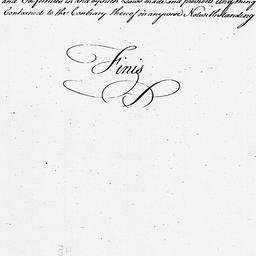 and Confirmed in and by such Laws made and provided anything
Contained to the Contrary thereof in anywise Notwithstanding
Finis